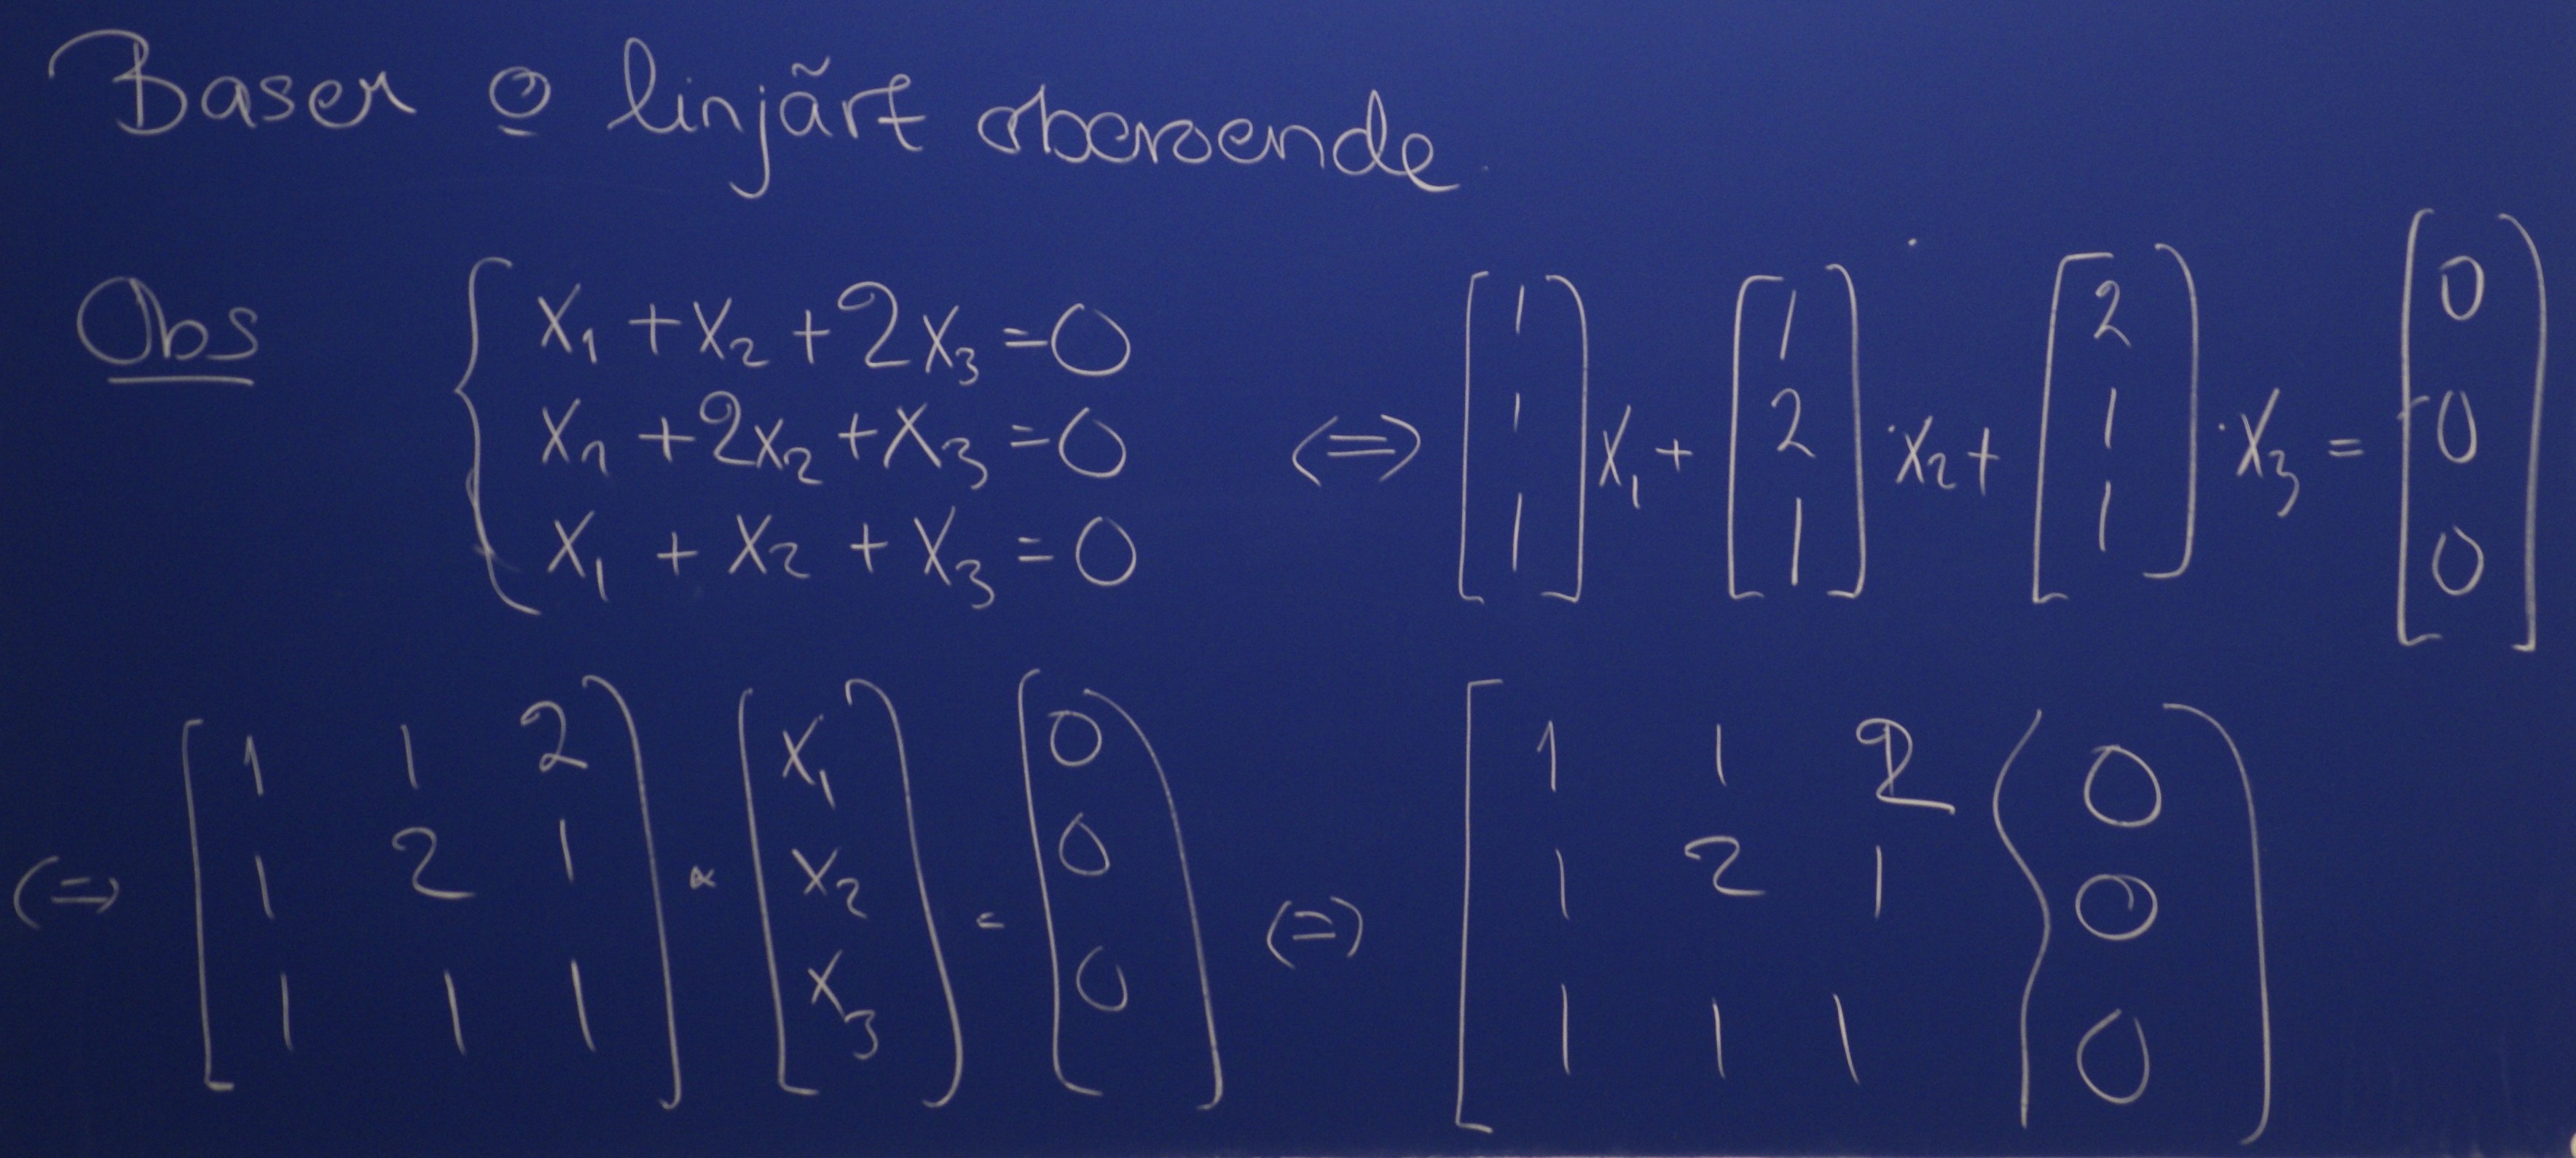 Baser o linjärt oberoende
Obs { x₁ + x₂ + 2x₃ = 0
x₁ + 2x₂ + x₃ = 0
x₁ + x₂ + x₃ = 0
⇔ [1 1 1] x₁ + [1 2 1] · x₂ + [2 1 1] · x₃ = [0 0 0]
⇔ [1 1 2
1 2 1
1 1 1] · [x₁ x₂ x₃] = [0 0 0]
⇔ [1 1 2 | 0
1 2 1 | 0
1 1 1 | 0]